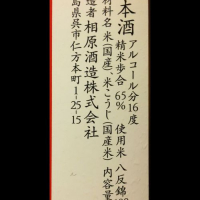 本酒
アルコール分16度
精米歩合 65% 使用米 八反錦
材料名 米(国産) 米こうじ(国産米) 内容量
造者 相原酒造株式会社
島県呉市仁方本町1-25-15